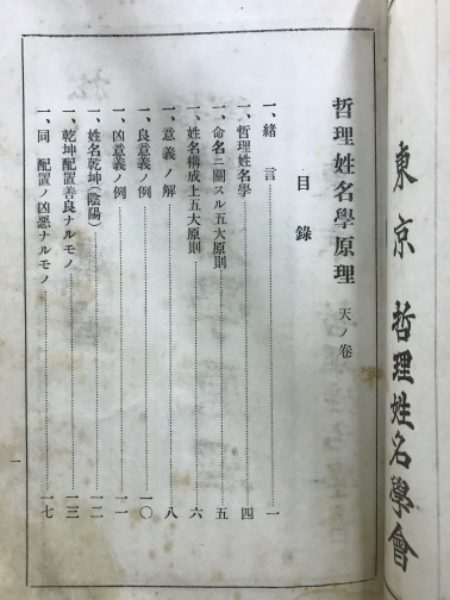 東京 哲理姓名學會
哲理姓名學原理 天ノ卷
目錄
一、緒言……一
一、哲理姓名學……四
一、命名ニ關スル五大原則……五
一、姓名構成上五大原則……六
一、意義ノ解……八
一、良意義ノ例……一〇
一、凶意義ノ例……一一
一、姓名乾坤(陰陽)……一二
一、乾坤配置善良ナルモノ……一三
一、同 配置ノ凶惡ナルモノ……一七
一